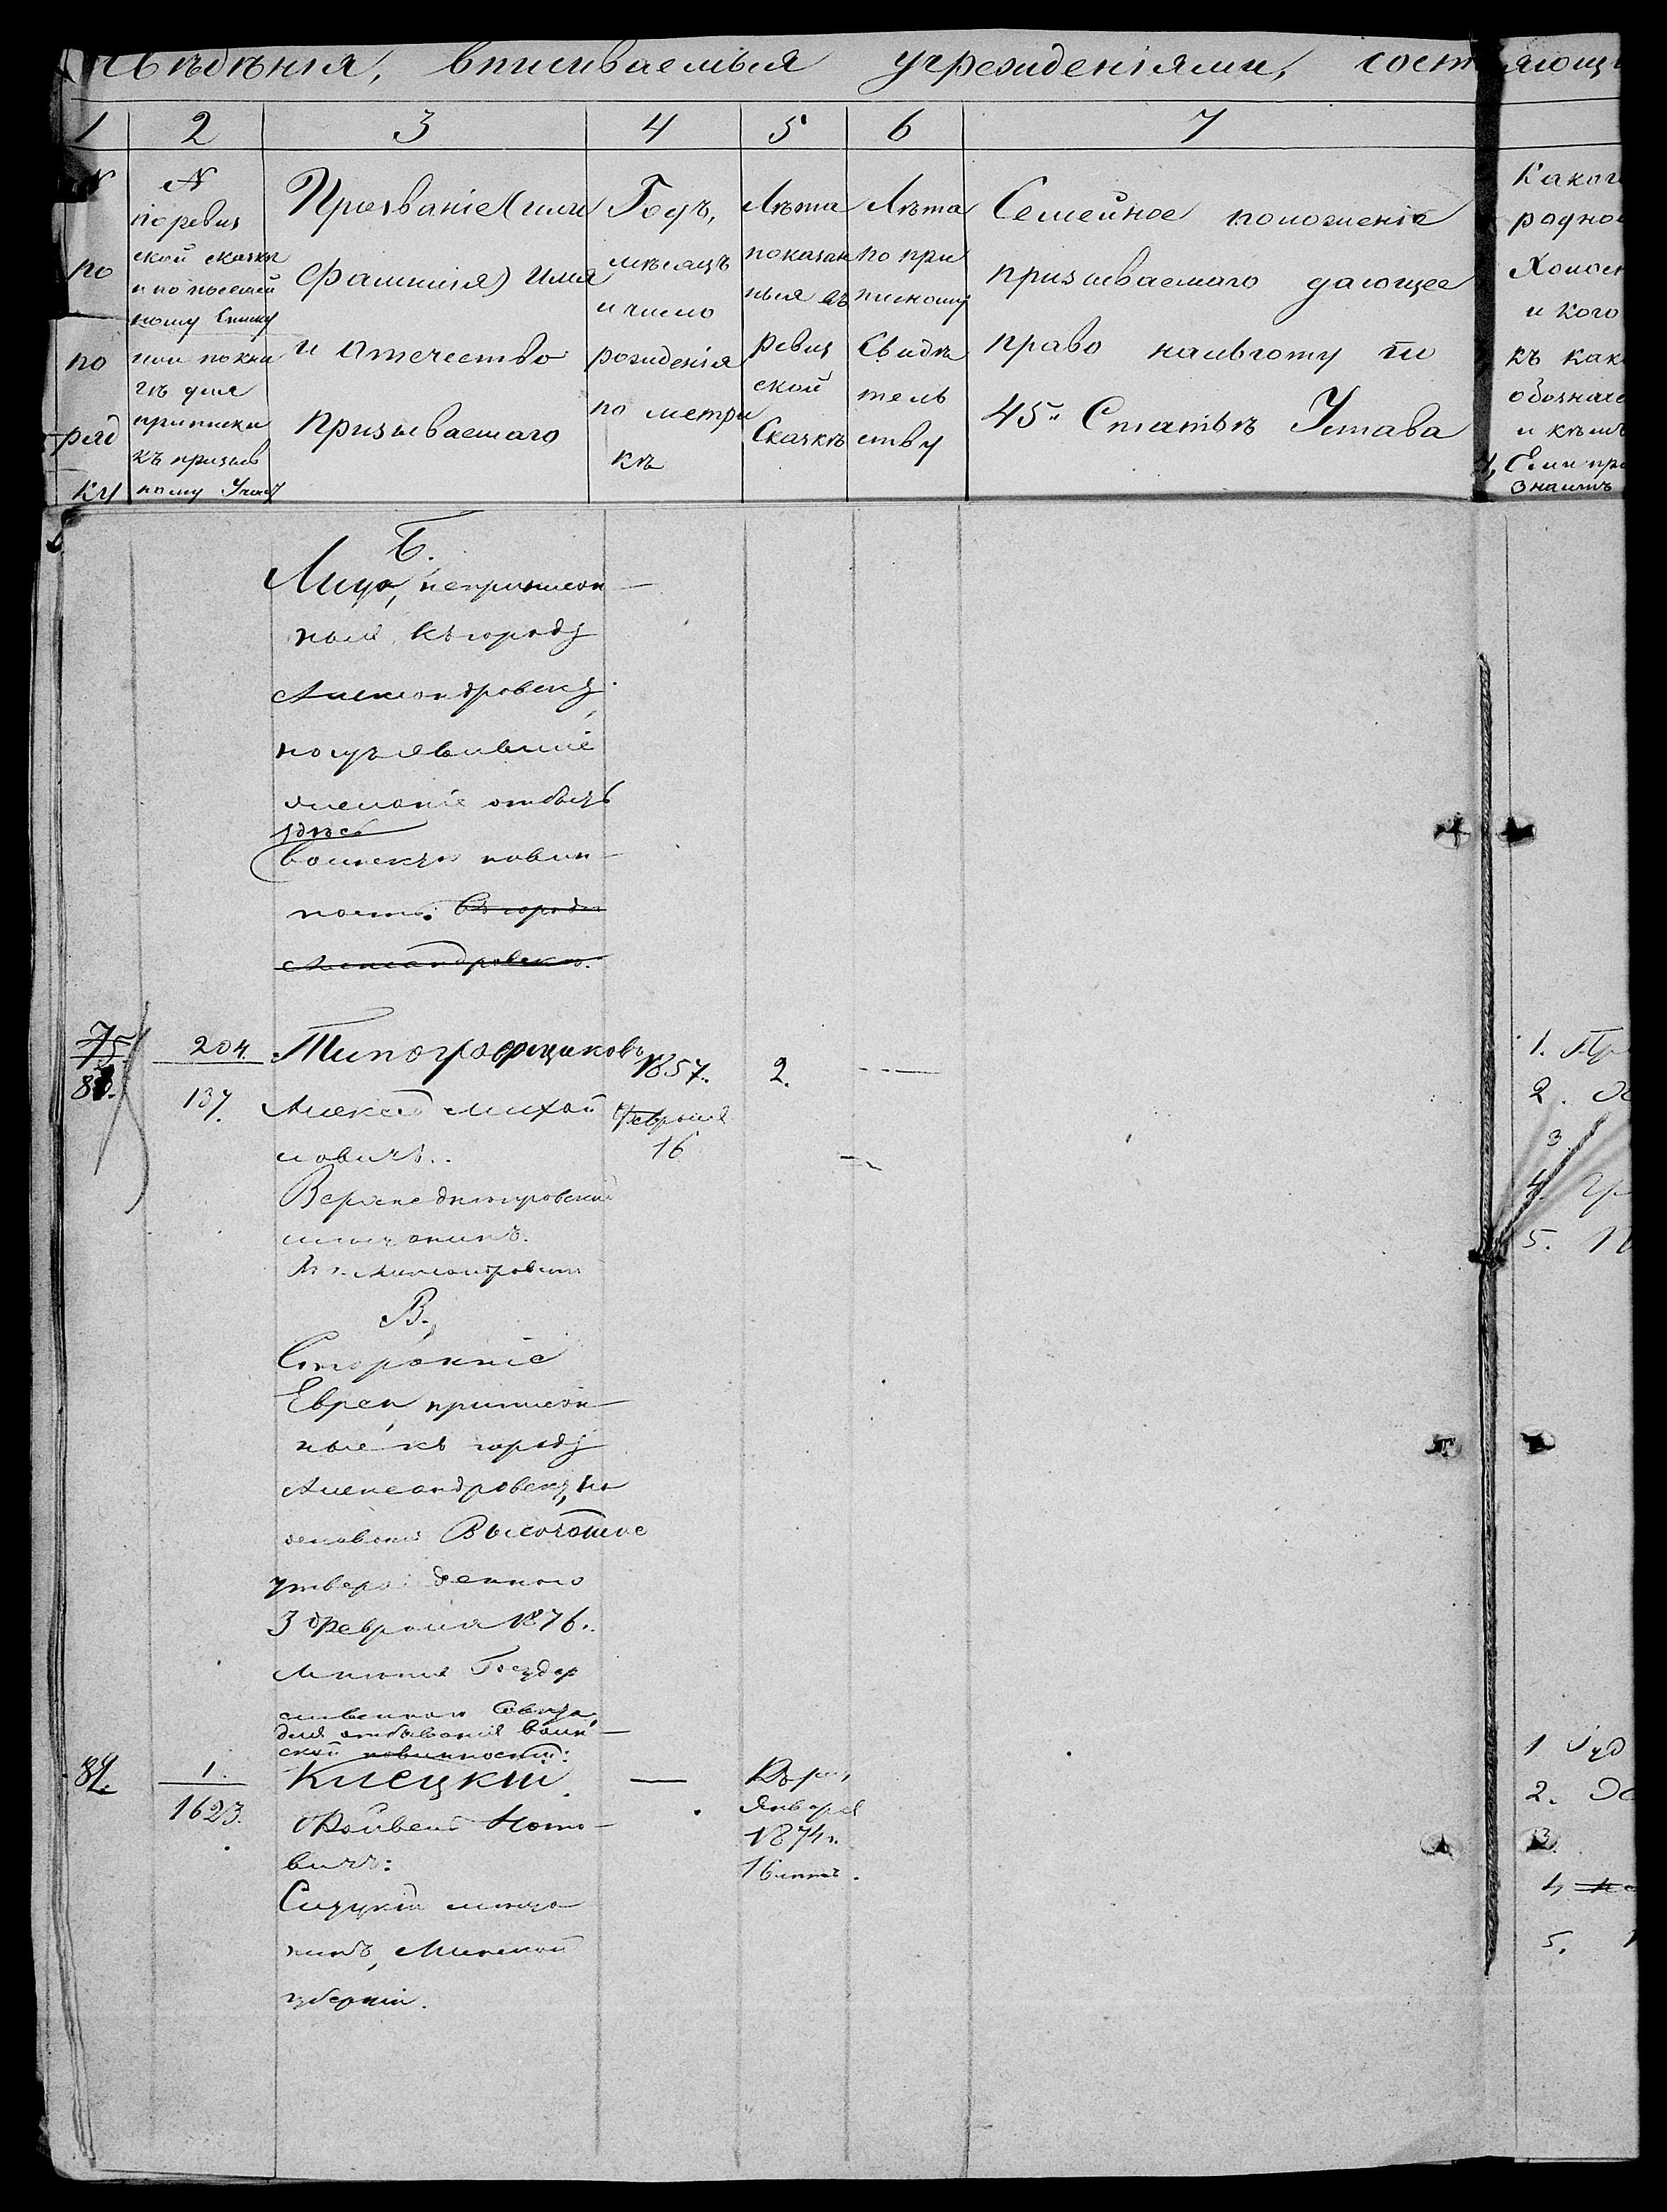 Свѣдѣнія, вписываемыя учрежденіями, состояющи
1 2 3 4 5 6 7
№
по
по
ряд
ку
№
по ревиз
ской сказки
и по посемей
ному списку
или по кни
гѣ для
приписки
къ призыв
ному Участ
Прозваніе (или
фамилія) имя
и отечество
призываемаго
Годъ,
мѣсяцъ
и число
рожденія
по метри
кѣ
Лѣта
показан
ныя въ
ревиз
ской
Сказкѣ
Лѣта
по при
писному
Свидѣ
тель
ству
Семейное положеніе
призываемаго дающее
право на льготу по
45й Статьѣ Устава
Каког
родно
Холост
и кого
къ как
обознач
и кѣмъ
Если пр
знаитъ
Б.
Лица, неприписан
ныя къ городу
Александровску
но изъявившіе
желаніе отбыть
здѣсь
воинскую повин
ность. въ городѣ
Александровскѣ.
75.
204.
137.
Типографщиковъ
Алексѣй Михай
ловичъ.
Верхнеднѣпровскій
мѣщанинъ.
1857.
Февраля
16
2.
1. Пр
2.
3
4.
5.
В.
Сторонніе
Евреи, приписан
ные къ городу
Александровску, на
основаніи Высочайше
утвержденнаго
3 Февраля 1876.
Мнѣнія Государ
ственнаго Совѣта,
для отбыванія воин
ской повинности:
1.
1623.
Клецкій
вичъ:
Слуцкій мѣща
нинъ, Минской
губерніи.
Января
1874.
16 лѣтъ.
1
2.
3.
4
5.